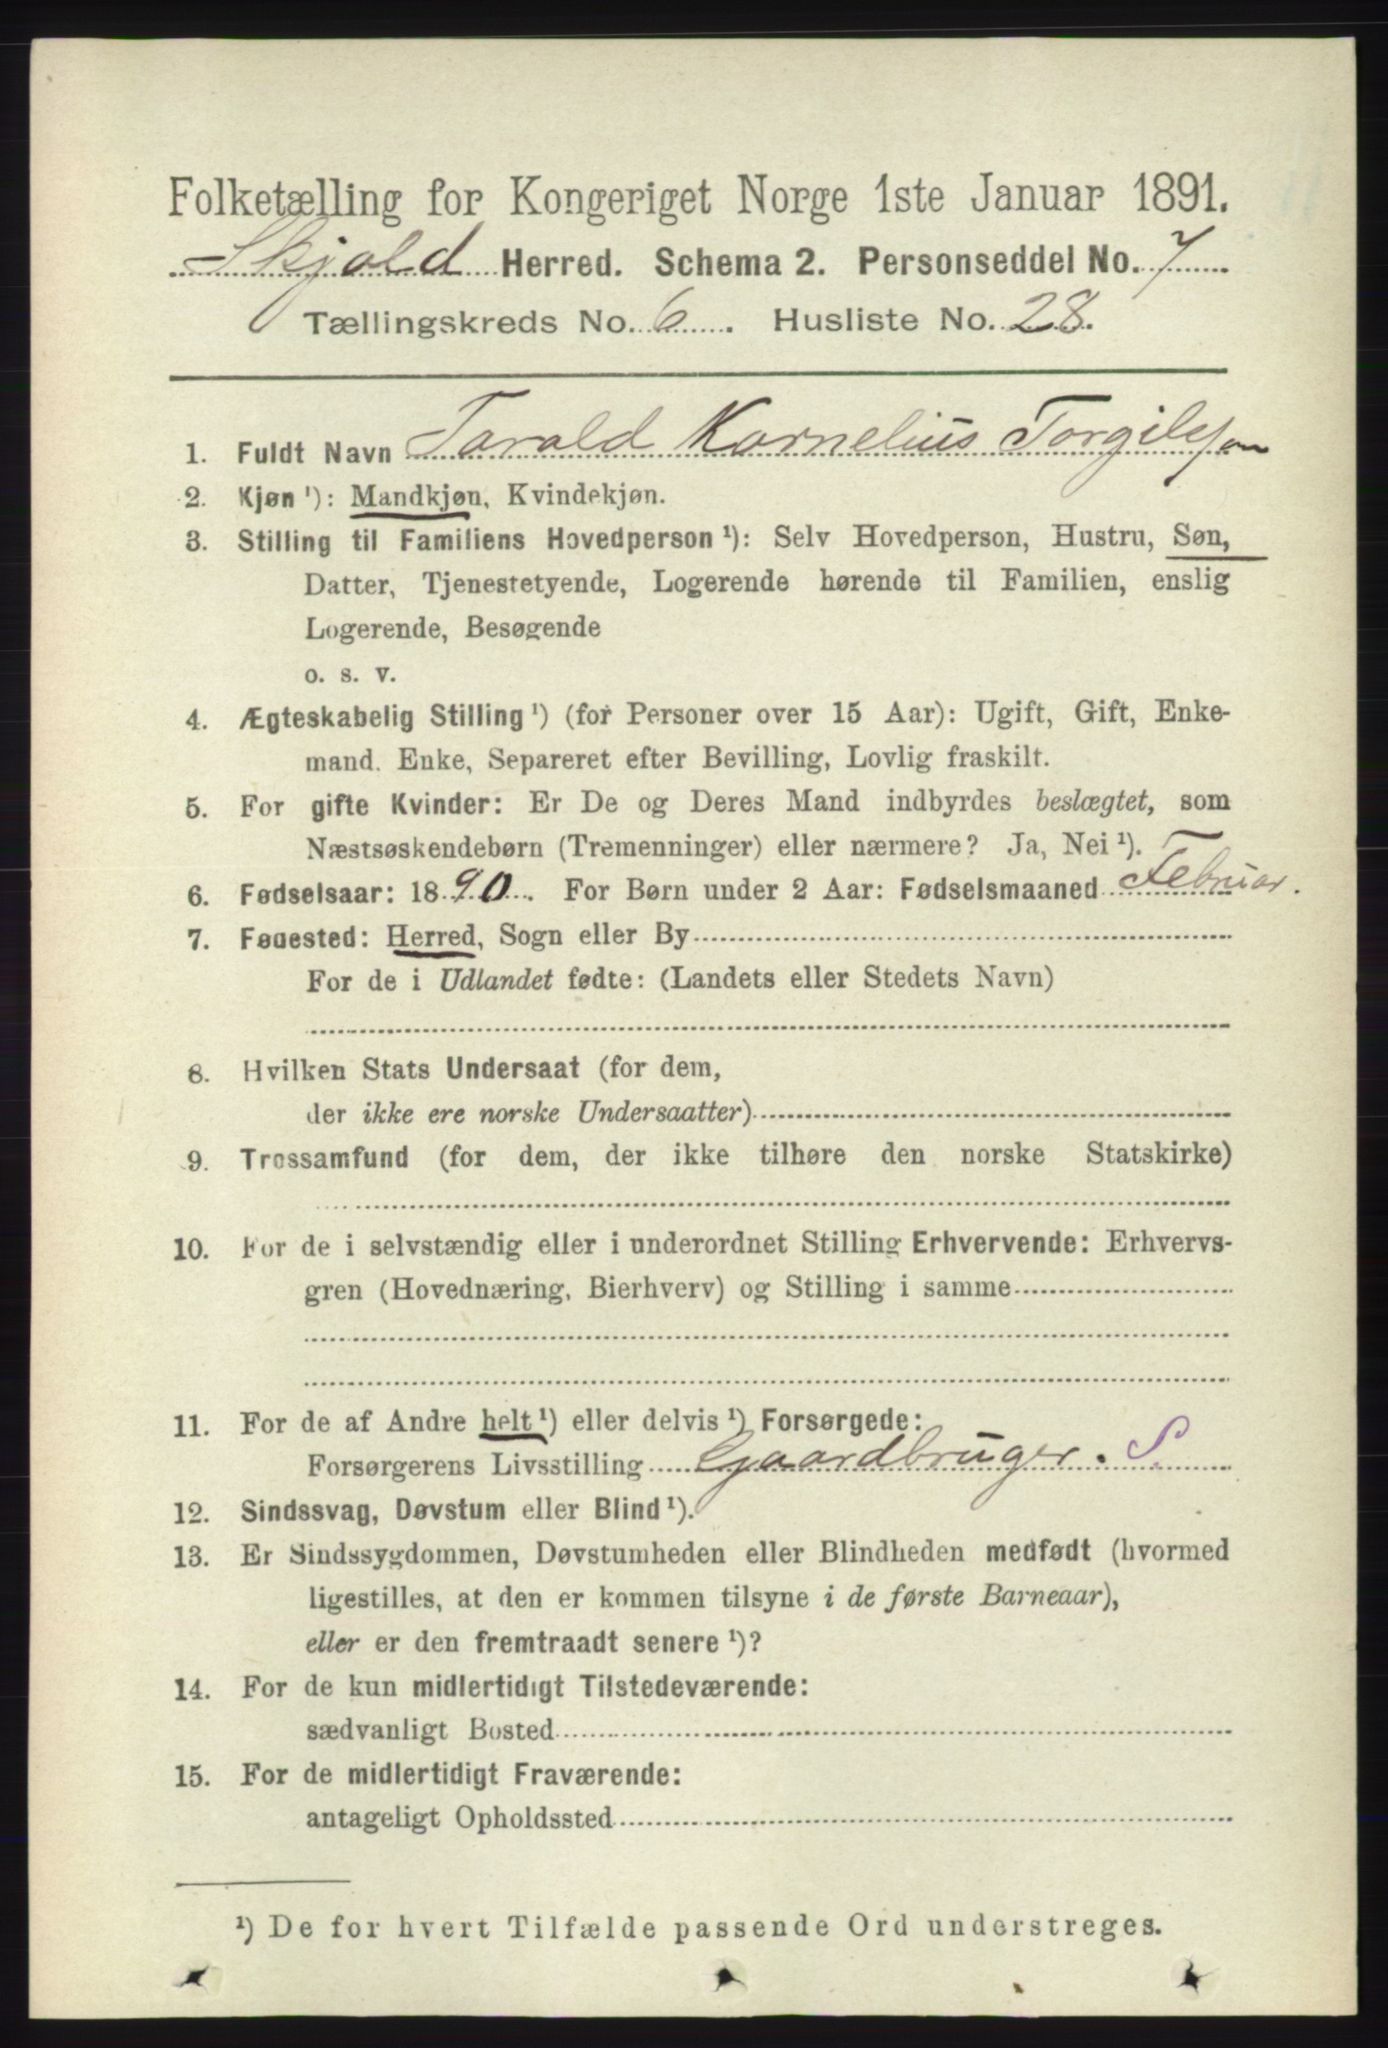 Folketælling for Kongeriget Norge 1ste Januar 1891.
Skjold Herred. Schema 2. Personseddel No. 7
Tællingskreds No. 6. Husliste No. 28.
1. Fuldt Navn Tarald Kornelius Torgilsson
2. Kjøn ¹): Mandkjøn, Kvindekjøn.
3. Stilling til Familiens Hovedperson ¹): Selv Hovedperson, Hustru, Søn,
Datter, Tjenestetyende, Logerende hørende til Familien, enslig
Logerende, Besøgende
o. s. v.
4. Ægteskabelig Stilling ¹) (for Personer over 15 Aar): Ugift, Gift, Enke-
mand. Enke, Separeret efter Bevilling, Lovlig fraskilt.
5. For gifte Kvinder: Er De og Deres Mand indbyrdes beslægtet, som
Næstsøskendebørn (Tremenninger) eller nærmere? Ja, Nei ¹).
6. Fødselsaar: 1890. For Børn under 2 Aar: Fødselsmaaned Februar.
7. Fødested: Herred, Sogn eller By
For de i Udlandet fødte: (Landets eller Stedets Navn)
8. Hvilken Stats Undersaat (for dem,
der ikke ere norske Undersaatter)
9. Trossamfund (for dem, der ikke tilhøre den norske Statskirke)
10. For de i selvstændig eller i underordnet Stilling Erhvervende: Erhvervs-
gren (Hovednæring, Bierhverv) og Stilling i samme
11. For de af Andre helt ¹) eller delvis ¹) Forsørgede:
Forsørgerens Livsstilling Gaardbruger. S.
12. Sindssvag, Døvstum eller Blind ¹).
13. Er Sindssygdommen, Døvstumheden eller Blindheden medfødt (hvormed
ligestilles, at den er kommen tilsyne i de første Barneaar),
eller er den fremtraadt senere ¹)?
14. For de kun midlertidigt Tilstedeværende:
sædvanligt Bosted
15. For de midlertidigt Fraværende:
antageligt Opholdssted
¹) De for hvert Tilfælde passende Ord understreges.